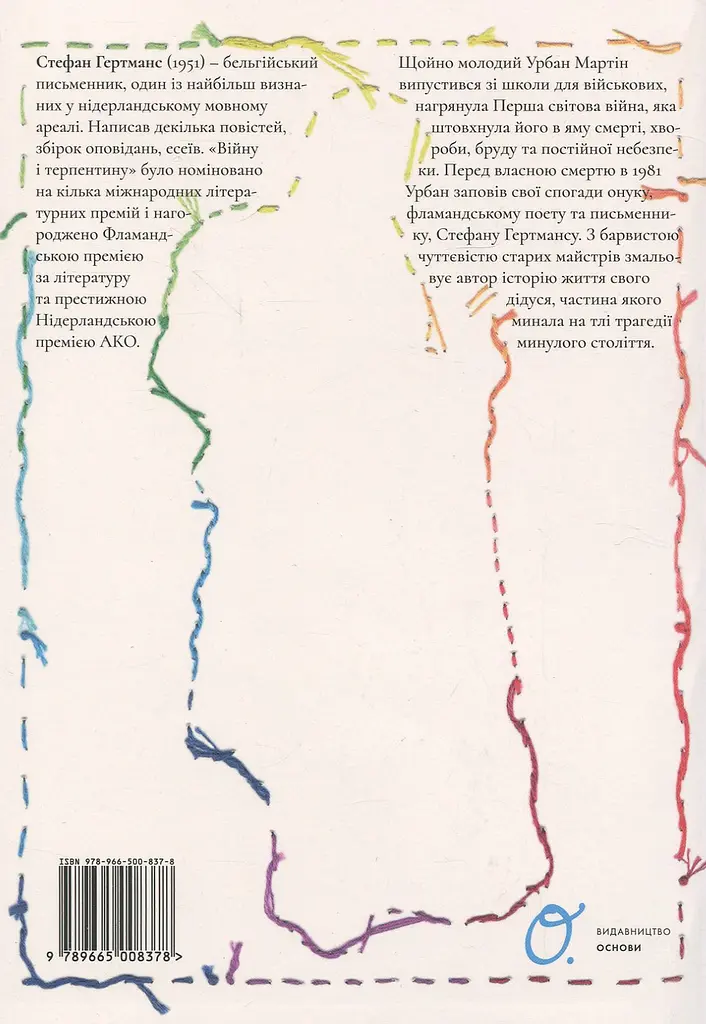 Стефан Гертманс (1951) – бельгійський
письменник, один із найбільш визна-
них у нідерландському мовному
ареалі. Написав декілька повістей,
збірок оповідань, есеїв. «Війну
і терпентину» було номіновано
на кілька міжнародних літера-
турних премій і наго-
роджено Фламанд-
ською премією
за літературу
та престижною
Нідерландською
премією АКО.
Щойно молодий Урбан Мартін
випустився зі школи для військових,
нагрянула Перша світова війна, яка
штовхнула його в яму смерті, хво-
роби, бруду та постійної небезпе-
ки. Перед власною смертю в 1981
Урбан заповів свої спогади онуку,
фламандському поету та письменни-
ку, Стефану Гертмансу. З барвистою
чуттєвістю старих майстрів змальо-
вує автор історію життя свого
дідуся, частина якого
минала на тлі трагедії
минулого століття.
ISBN 978-966-500-837-8
9 789665 008378 >
О.
ВИДАВНИЦТВО
ОСНОВИ